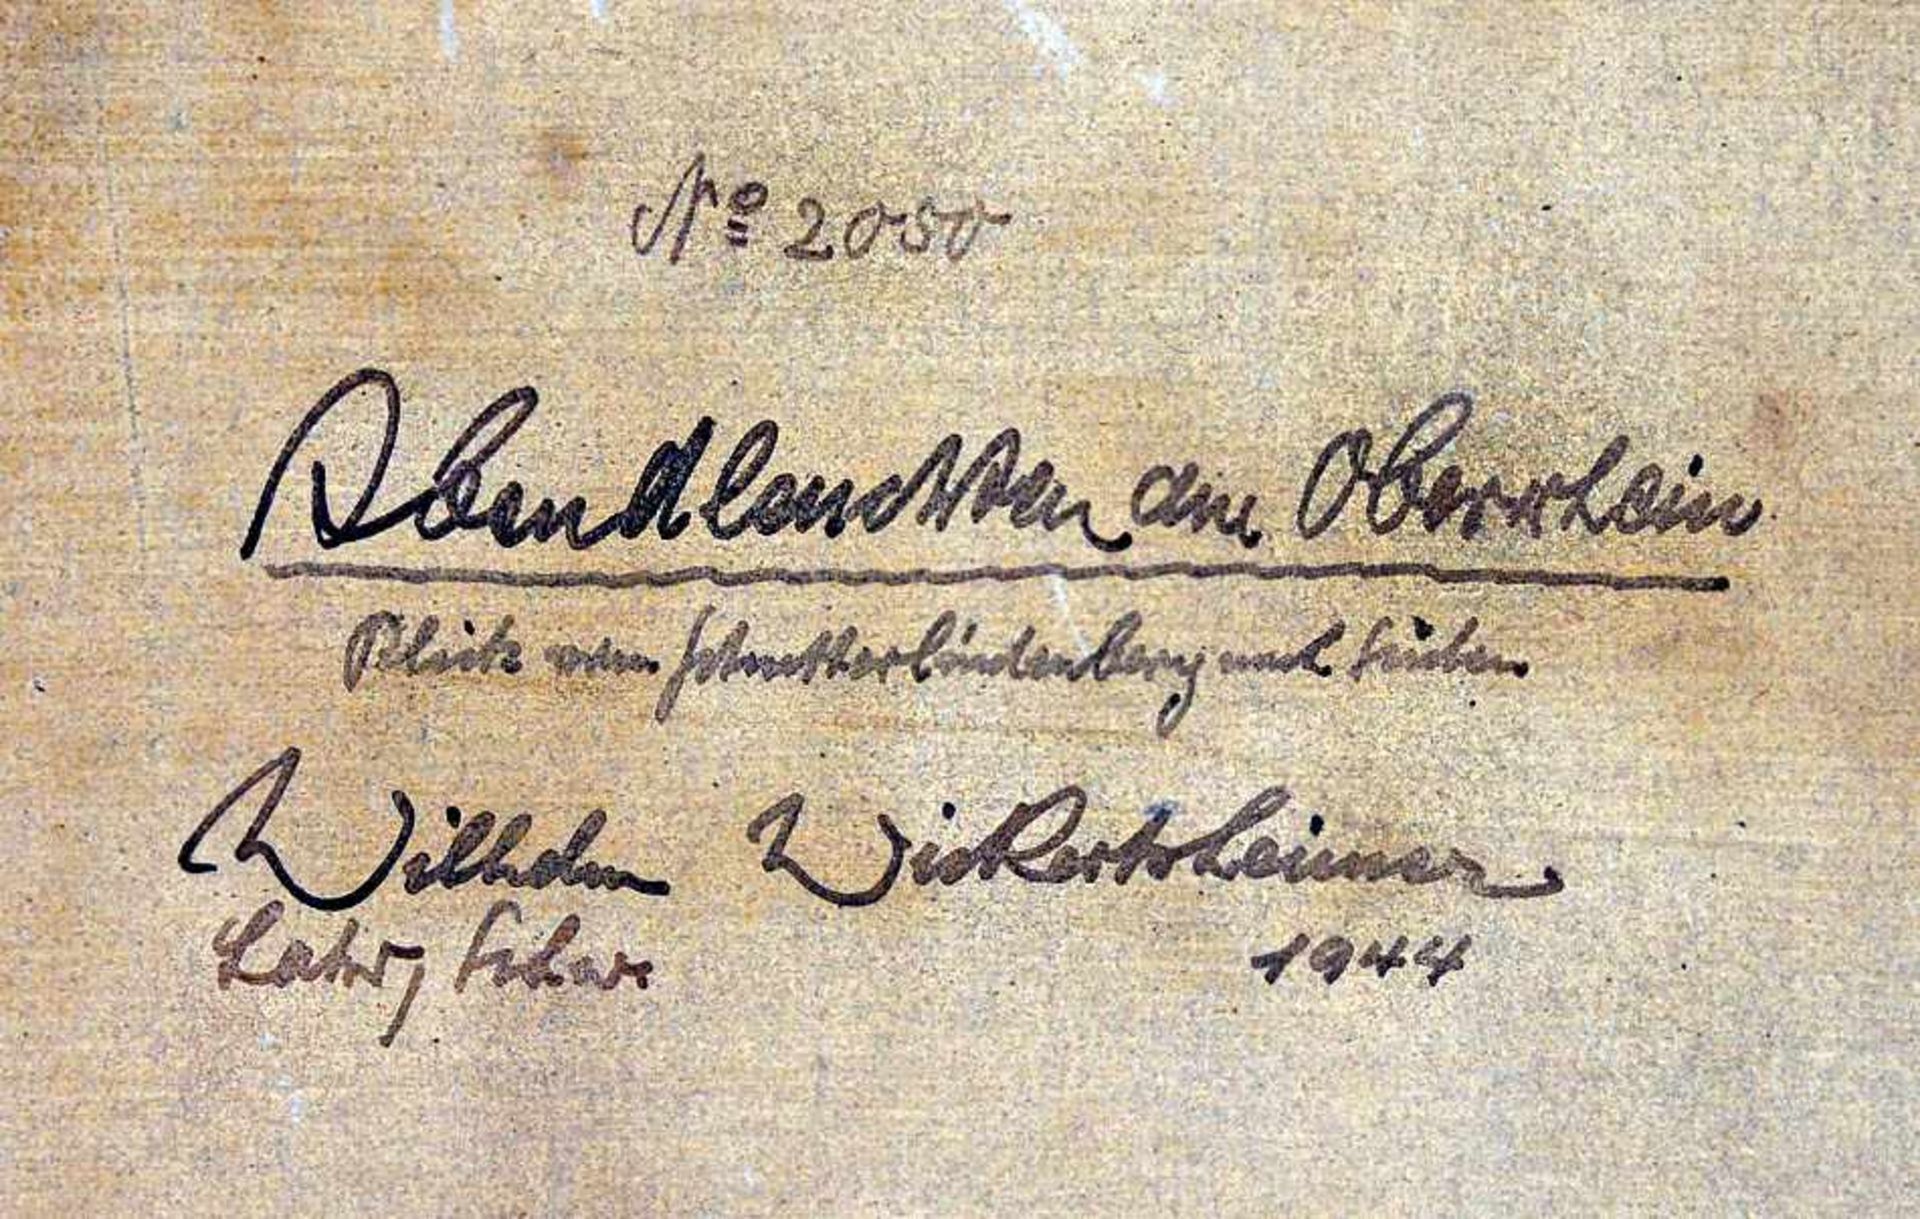 Nº 2050
Abendleuchten am Oberrhein
Blick vom Schutterlindenberg nach Süden
Wilhelm Wickertsheimer
Lahr, Schw.
1944